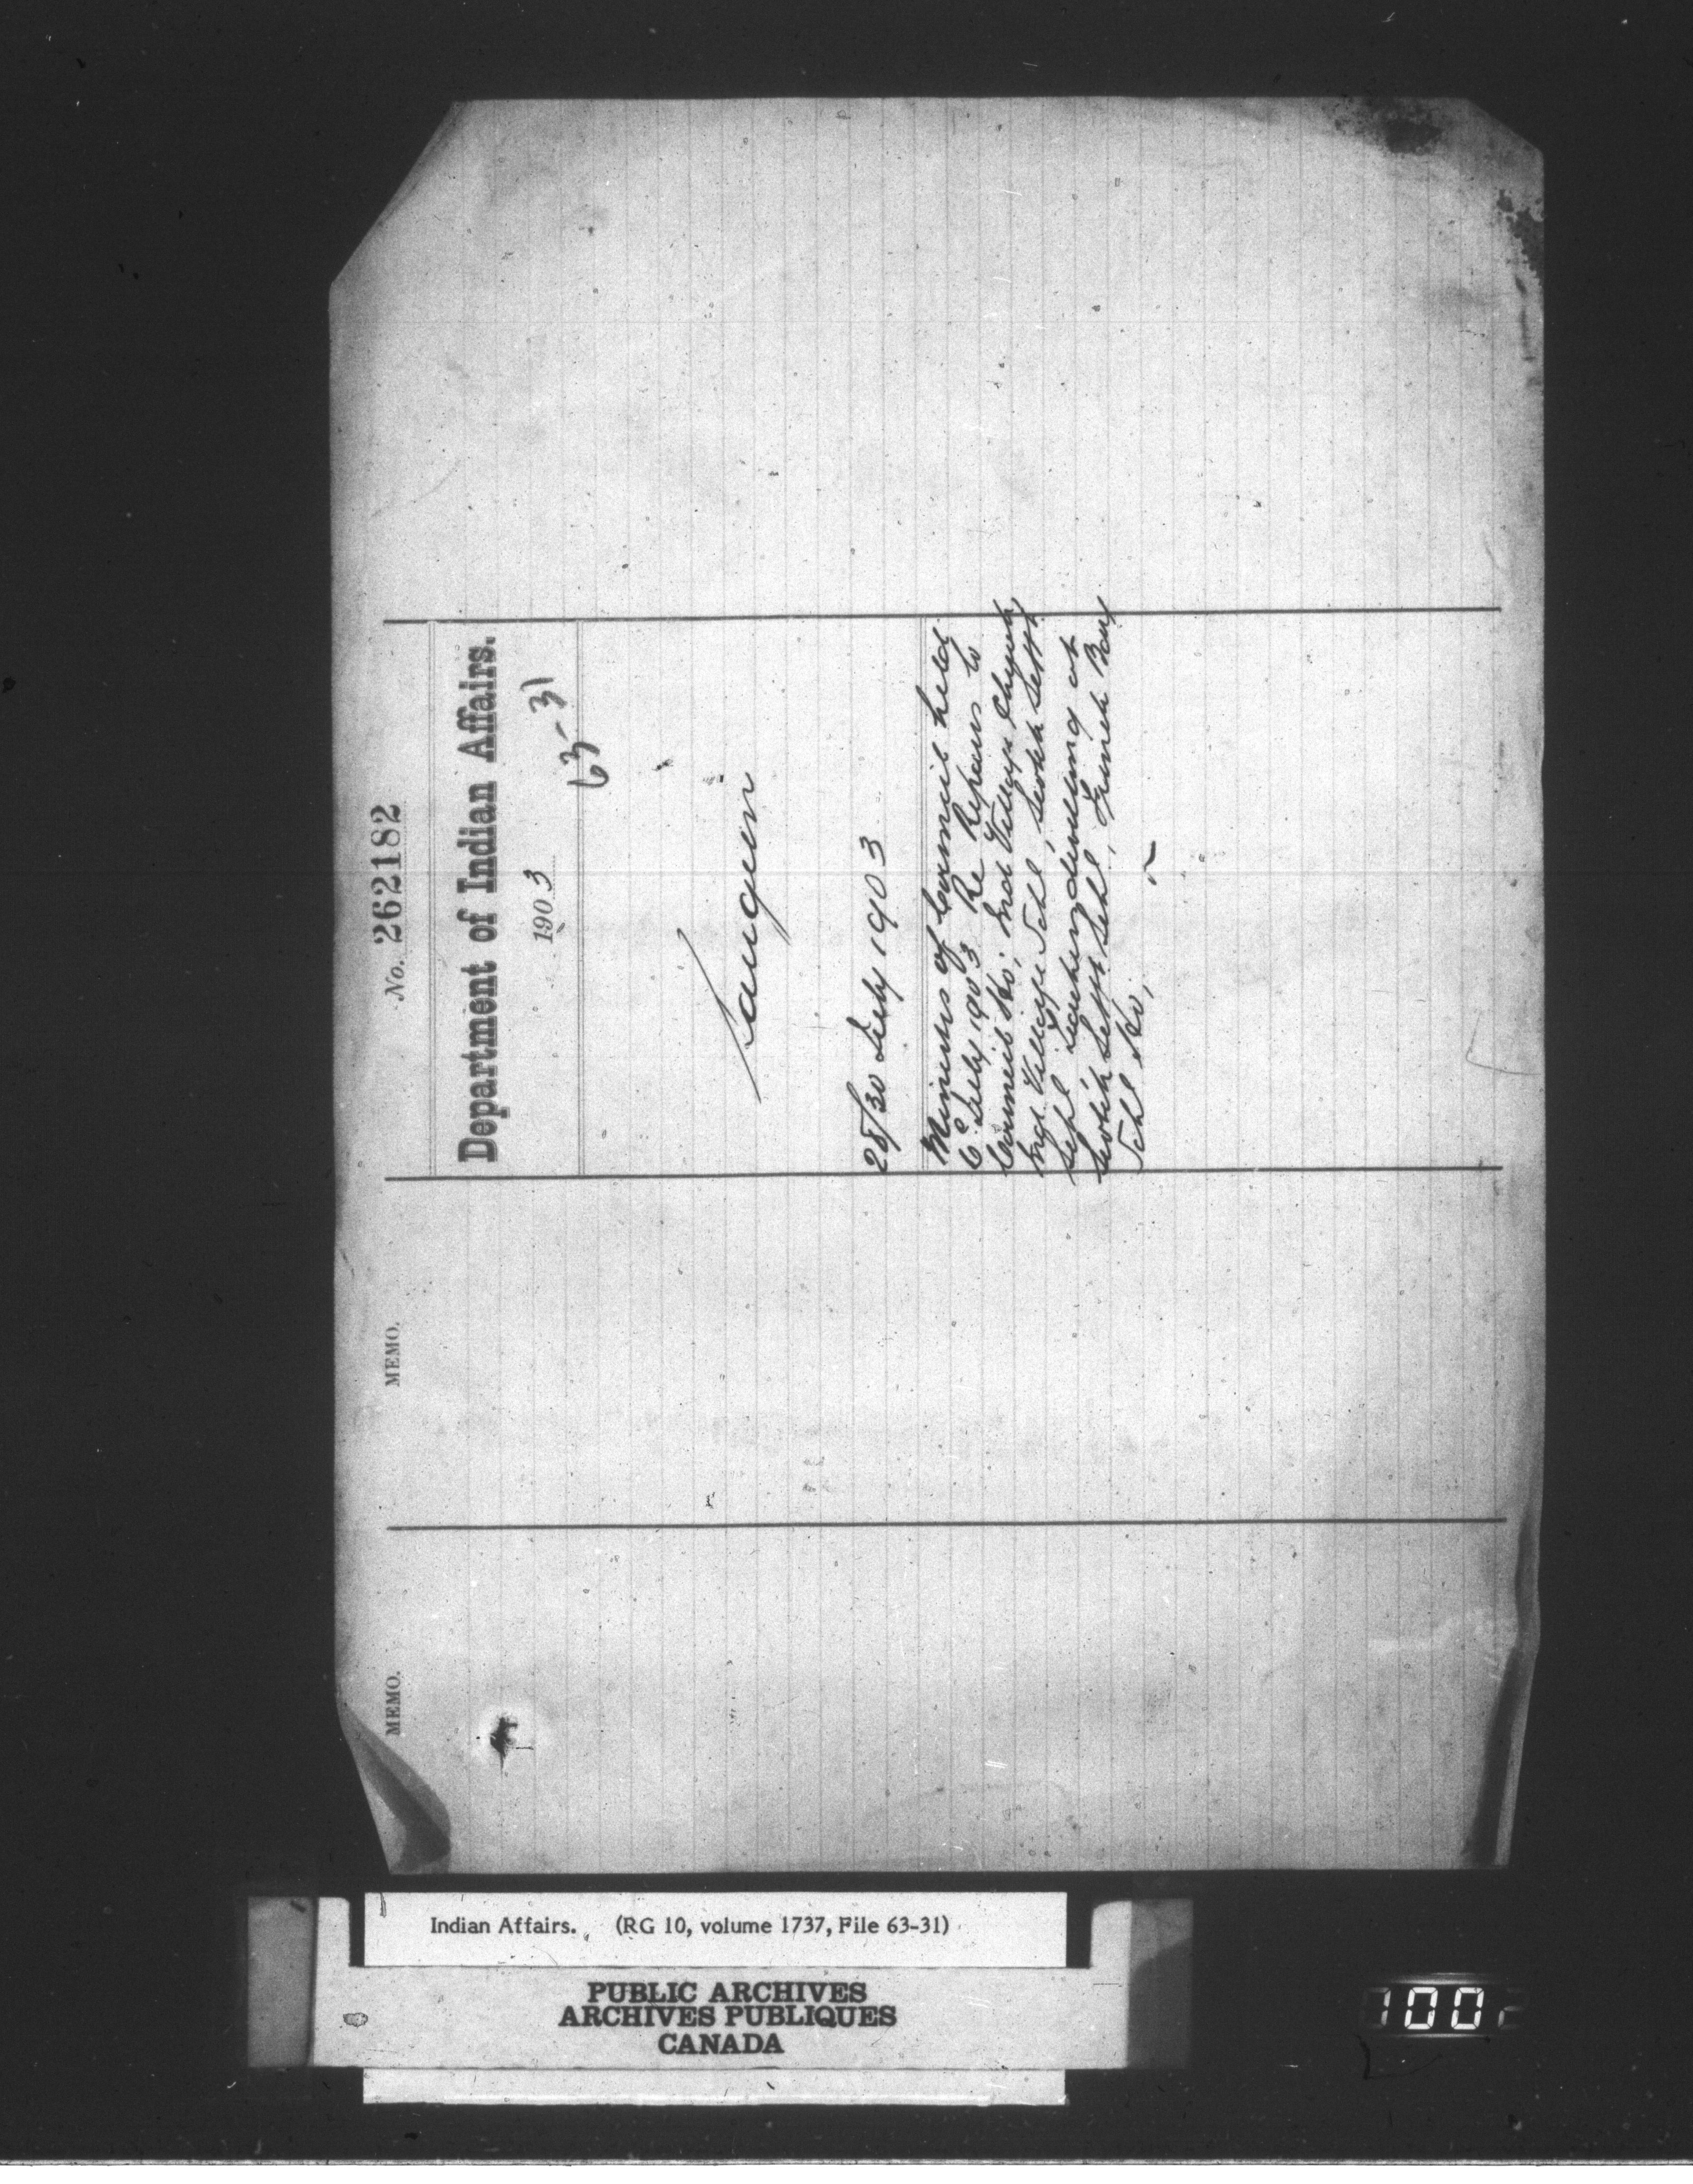 No. 262182
Department of Indian Affairs.
1903
63-31
Saugeen
28/30 July 1903
Minutes of Council held
6th July 1903 Re Repairs to
Council Ho; Ind Village Church,
Ind Village Schl, Scotch Settt
Schl, Teachers dwelling at
Scotch Settt Schl, French Bay
Schl Ho;
MEMO.
MEMO.
Indian Affairs. (RG 10, volume 1737, File 63-31)
PUBLIC ARCHIVES
ARCHIVES PUBLIQUES
CANADA
1002